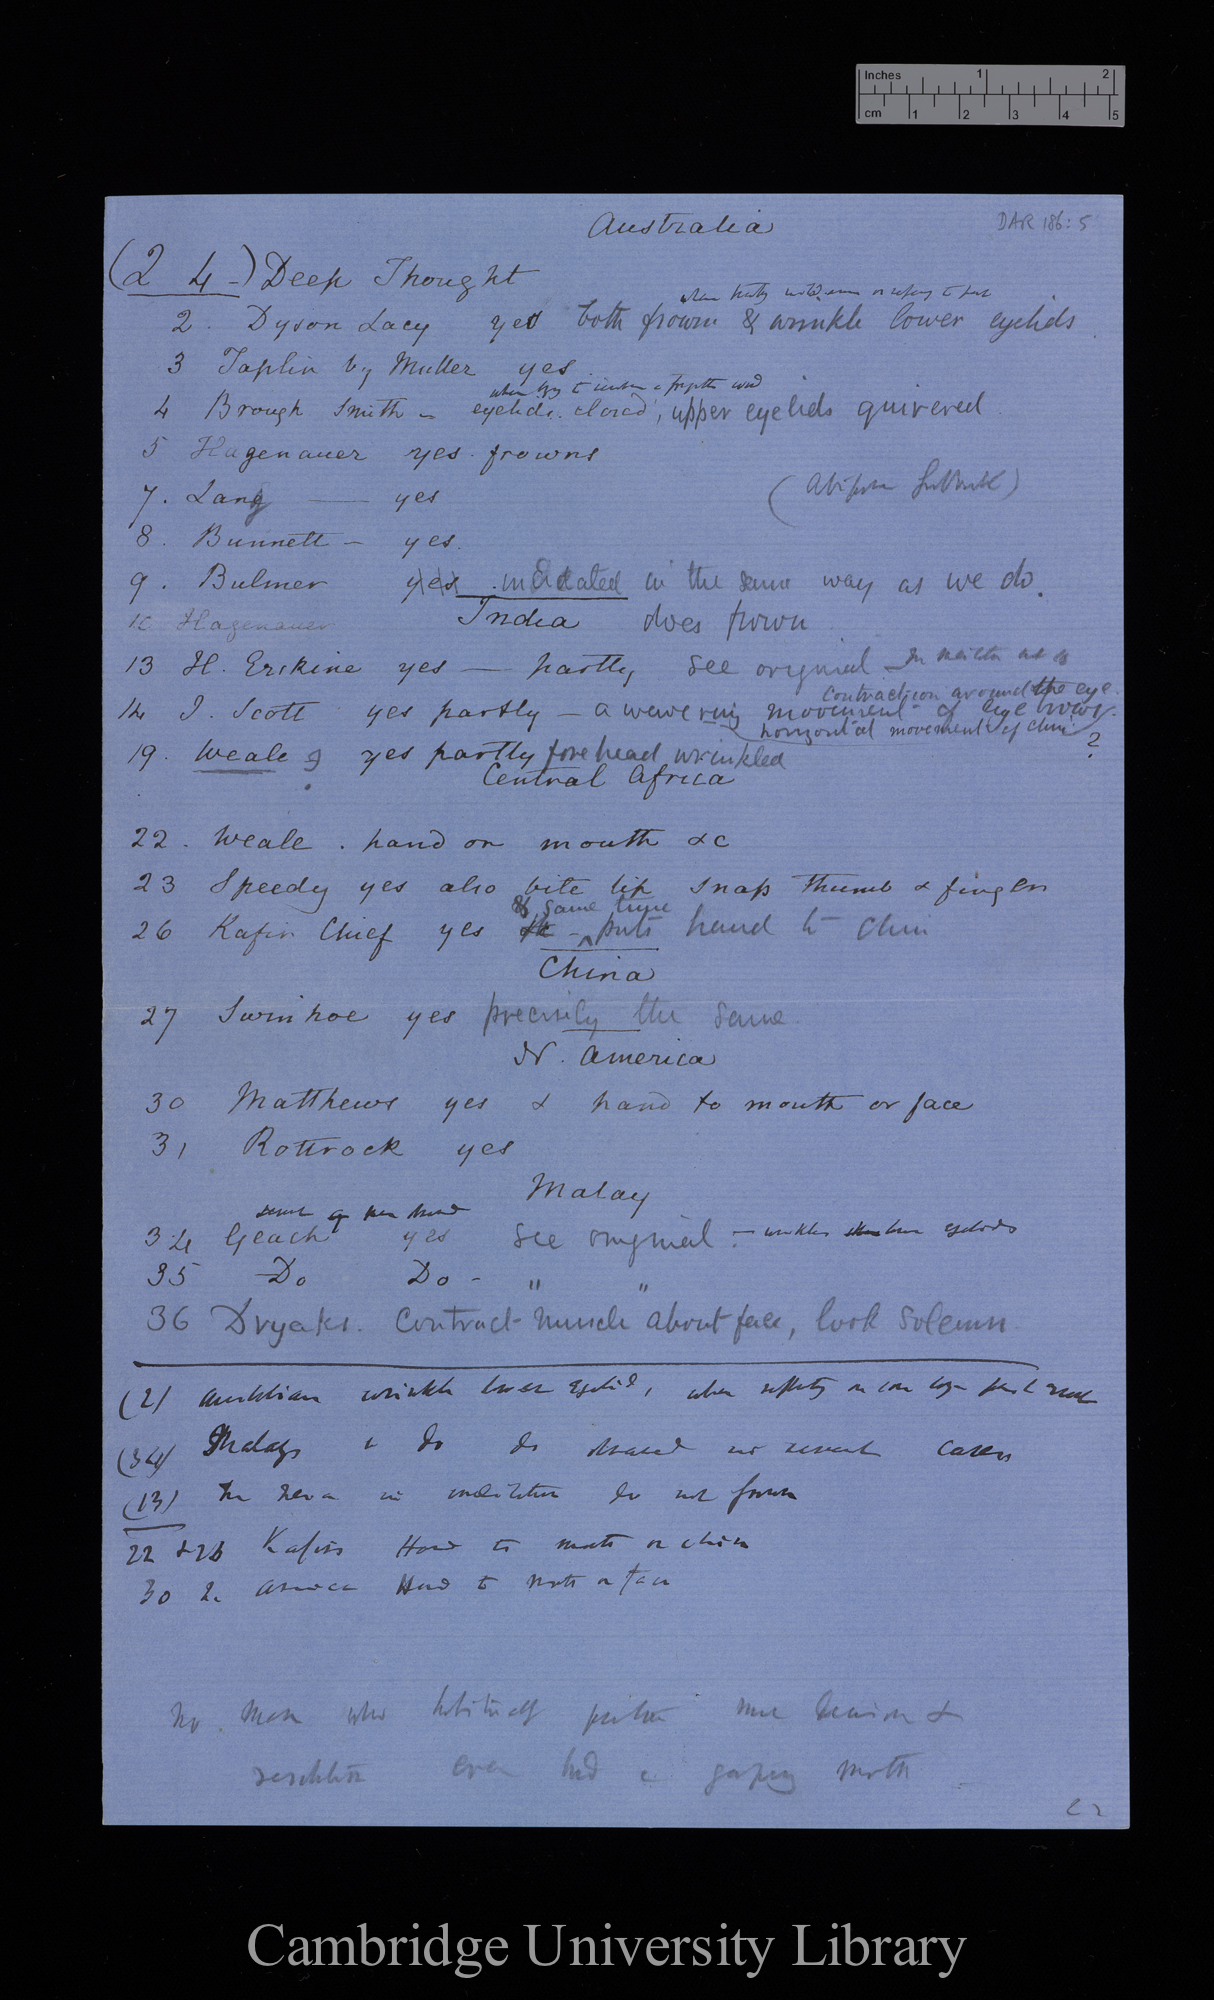 Inches 1 2
cm 1 2 3 4 5
Australia
DAR 186: 5
(2 4-) Deep Thought
2. Dyson Lacy yes both frown & wrinkle lower eyelids
3 Taplin by Muller yes.
when try to
4 Brough Smith - eyelids closed, upper eyelids quivered
5 Hagenauer yes. frowns
7. Lang — yes
8. Bunnett - yes.
9. Bulmer yes indicated in the same way as we do.
10 Hagenauer does frown
India
13 H. Erskine yes — partly see original
contraction around the eye.
14 J. Scott yes partly - a wavering movement of eye brows.
horizontal movement of chin ?
19. Weale yes partly forehead wrinkled
Central Africa
22. Weale. hand on mouth &c
23 Speedy yes also bite lip snap thumb & finger
& same time
26 Kafir Chief yes - puts hand to chin
China
27 Swinhoe yes precisely the same
N. America
30 Matthews yes & hand to mouth or face
31 Rottrock yes
Malay
34 Geach yes see original - wrinkles lower eyelids
35 Do Do - " "
36 Dryaks. Contract muscle about face, look solemn
(2) Australian wrinkle lower eyelid, when reflecting on
(34) Malays & do do observed in several cases
(13) The in meditation do not frown
22 & 26 Kafirs Hand to mouth or chin
30 N. America Hand to mouth or face
No man who habitually more decision &
resolution ever had a gaping mouth
Cambridge University Library